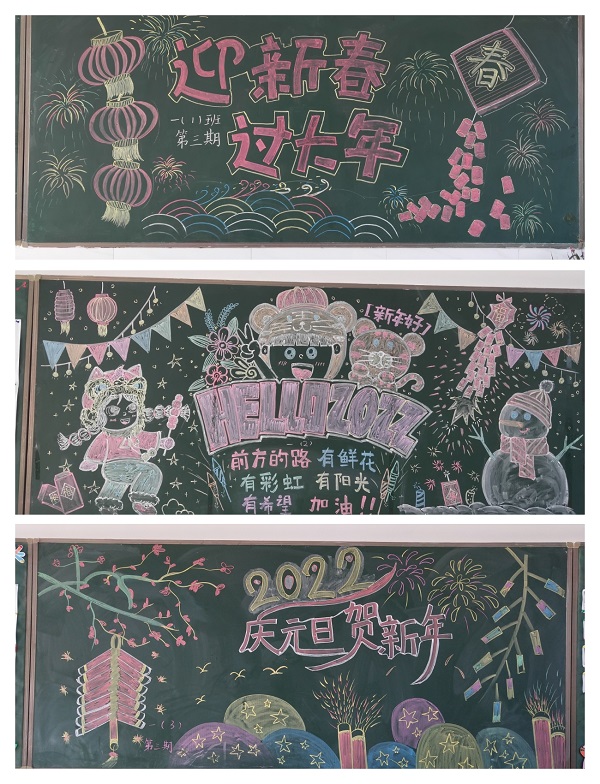 迎新春
过大年
一(1)班
第三期
春
【新年好】
HELLO2022
(2)
前方的路 有鲜花
有彩虹 有阳光
有希望 加油!!
2022
庆元旦贺新年
一(3)
第三期